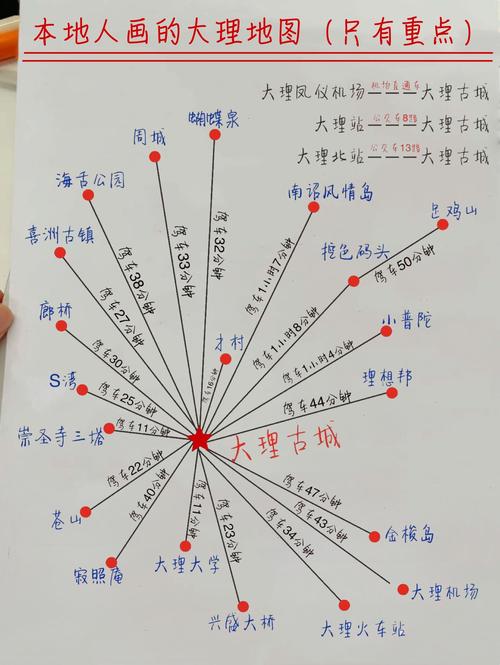 本地人画的大理地图（只有重点）
大理凤仪机场 机场直通车 大理古城
大理站 公交车8路 大理古城
大理北站 公交车13路 大理古城
蝴蝶泉
周城
海舌公园
南诏风情岛
足鸡山
喜洲古镇
挖色码头
驾车50分钟
驾车38分钟
驾车33分钟
驾车32分钟
驾车1小时7分钟
驾车27分钟
廊桥
驾车1小时8分钟
小普陀
才村
驾车30分钟
驾车1小时4分钟
S湾
理想邦
驾车25分钟
驾车44分钟
崇圣寺三塔
驾车11分钟
大理古城
驾车22分钟
驾车40分钟
驾车11分钟
驾车23分钟
驾车34分钟
驾车43分钟
驾车47分钟
苍山
金梭岛
寂照庵
大理大学
大理机场
兴盛大桥
大理火车站